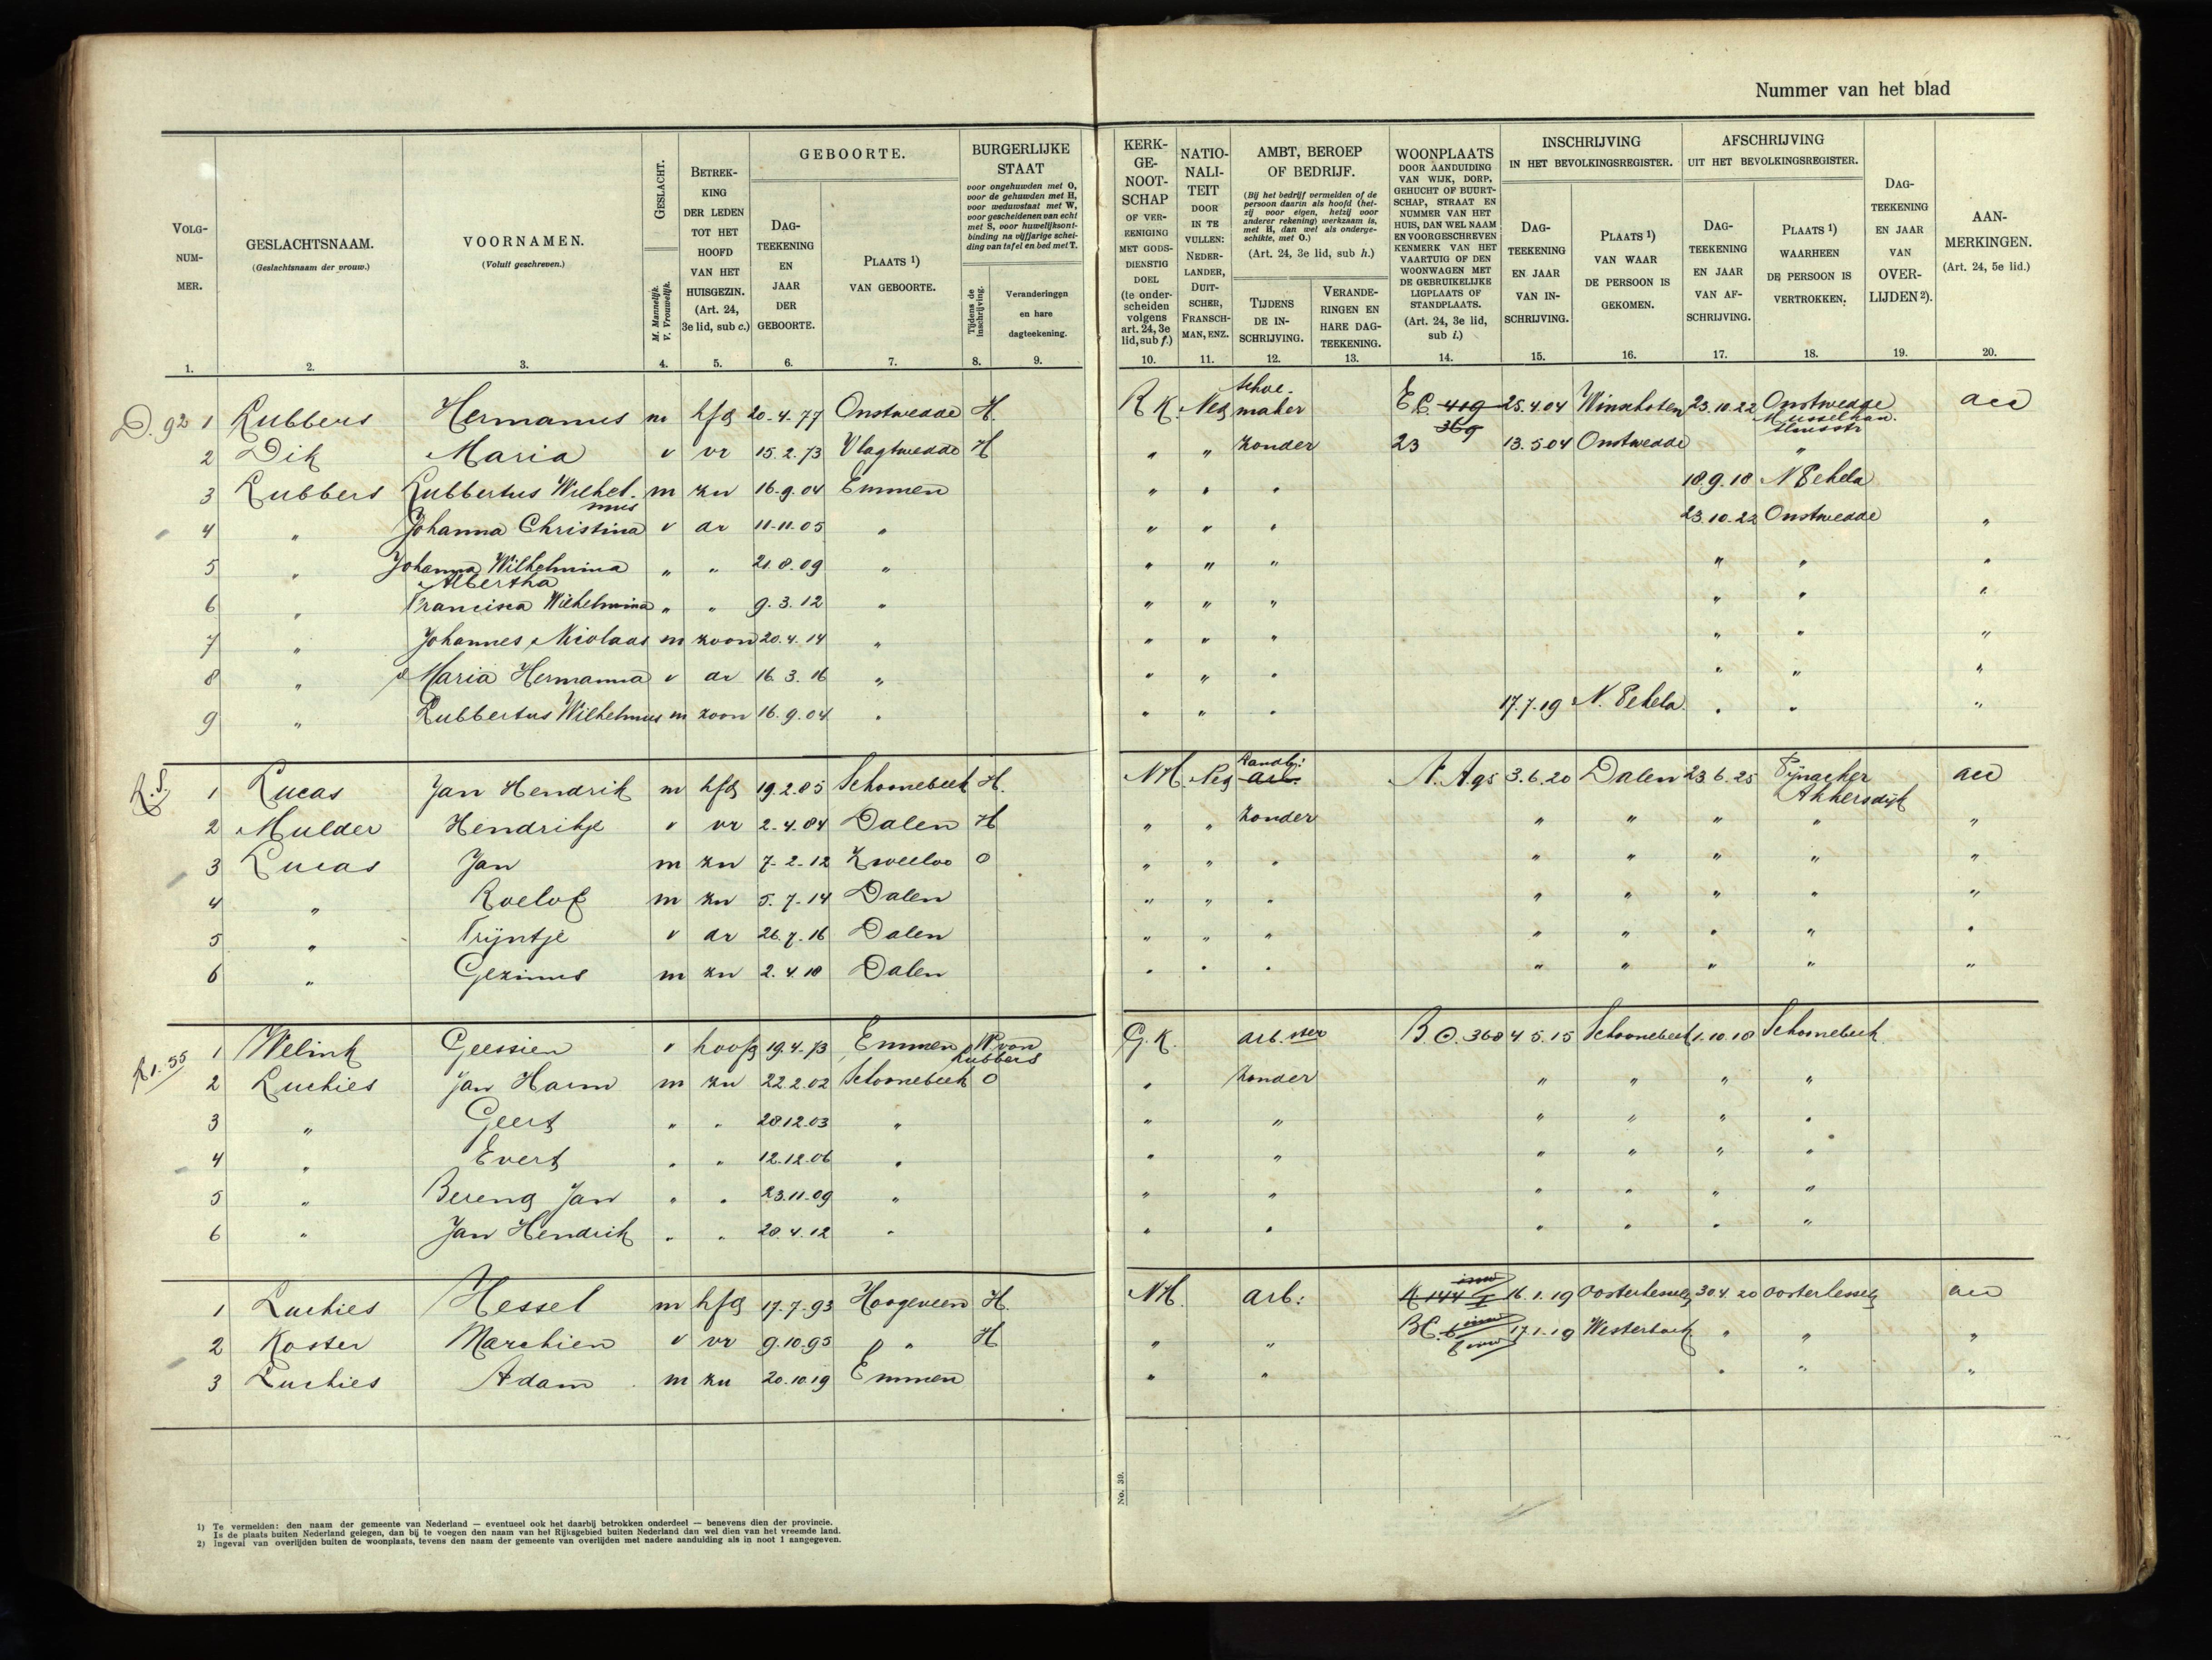 Nummer van het blad
VOLG-NUM-MER. GESLACHTSNAAM. (Geslachtsnaam der vrouw.) VOORNAMEN. (Voluit geschreven.) GESLACHT. M. Mannelijk. V. Vrouwelijk. BETREK-KING DER LEDEN TOT HET HOOFD VAN HET HUISGEZIN. (Art. 24, 3e lid, sub c.) GEBOORTE. DAG-TEEKENING EN JAAR DER GEBOORTE. PLAATS 1) VAN GEBOORTE. BURGERLIJKE STAAT voor ongehuwden met O, voor de gehuwden met H, voor weduwstaat met W, voor gescheidenen van echt met S, voor huwelijksont-binding na vijfjarige schei-ding van tafel en bed met T. Tijdens de inschrijving. Veranderingen en hare dagteekening.
KERK-GE-NOOT-SCHAP OF VER-EENIGING MET GODS-DIENSTIG DOEL (te onder-scheiden volgens art. 24, 3e lid, sub f.) NATIO-NALI-TEIT DOOR IN TE VULLEN: NEDER-LANDER, DUIT-SCHER, FRANSCH-MAN, ENZ. AMBT, BEROEP OF BEDRIJF. (Bij het bedrijf vermelden of de persoon daarin als hoofd (het-zij voor eigen, hetzij voor anderer rekening) werkzaam is, met H, dan wel als onderge-schikte, met O.) (Art. 24, 3e lid, sub h.) TIJDENS DE IN-SCHRIJVING. VERANDE-RINGEN EN HARE DAG-TEEKENING. WOONPLAATS DOOR AANDUIDING VAN WIJK, DORP, GEHUCHT OF BUURT-SCHAP, STRAAT EN NUMMER VAN HET HUIS, DAN WEL NAAM EN VOORGESCHREVEN KENMERK VAN HET VAARTUIG OF DEN WOONWAGEN MET DE GEBRUIKELIJKE LIGPLAATS OF STANDPLAATS. (Art. 24, 3e lid, sub i.) INSCHRIJVING IN HET BEVOLKINGSREGISTER. DAG-TEEKENING EN JAAR VAN IN-SCHRIJVING. PLAATS 1) VAN WAAR DE PERSOON IS GEKOMEN. AFSCHRIJVING UIT HET BEVOLKINGSREGISTER. DAG-TEEKENING EN JAAR VAN AF-SCHRIJVING. PLAATS 1) WAARHEEN DE PERSOON IS VERTROKKEN. DAG-TEEKENING EN JAAR VAN OVER-LIJDEN 2). AAN-MERKINGEN. (Art. 24, 5e lid.)
1. 2. 3. 4. 5. 6. 7. 8. 9. 10. 11. 12. 13. 14. 15. 16. 17. 18. 19. 20.
D. 92 1 Lubbers Hermanus m hfd 20-4-77 Onstwedde H. R K. Ned schoe-maker E C 419 369 25.4.04 Winschoten 23.10.22 Onstwedde Musselkan.
2 Dik Maria v vr 15.2.73 Vlagtwedde H " " zonder 23 13.5.04 Onstwedde "
3 Lubbers Lubbertus Wilhel-mus m zn 16.9.04 Emmen " " " 18.9.18 N Pekela
4 " Johanna Christina v dr 11-11.05 " " " " 23.10.22 Onstwedde "
5 " Johanna Wilhelmina Albertha " " 21.8.09 " " " " " " "
6 " Francisca Wilhelmina " " 9.3.12 " " " " " " "
7 " Johannes Nicolaas m zoon 20.4.14 " " " " " " "
8 " Maria Hermanna v dr 16.3.16 " " " " " " "
9 " Lubbertus Wilhelmus m zoon 16.9.04 " " " " 17.7.19 N. Pekela. " " "
1 Lucas Jan Hendrik m hfd 19.2.85 Schoonebeek H. NH. Ned Landb: arb. 3.6.20 Dalen 23.6.25 Pijnacker Akkersdijk
2 Mulder Hendrikje v vr 2.4.84 Dalen H " " zonder " " " " "
3 Lucas Jan m zn 7-2-12 Zweeloo O " " " " " " " "
4 " Roelof m zn 5.7.14 Dalen " " " " " " " "
5 " Trijntje v dr 26.7.16 Dalen " " " " " " " "
6 " Gezinus m zn 2.4.18 Dalen " " " " " " " "
1 Welink Geessien v hoofd 19.4.73 Emmen W. van Lubbers G.K. arb.ster 368 4.5.15 Schoonebeek 1.10.18 Schoonebeek
2 Luchies Jan Harm m zn 22.2.02 Schoonebeek O " zonder " " " "
3 " Geert " " 28.12.03 " " " " " " "
4 " Evert " " 12.12.06 " " " " " " "
5 " Berend Jan " " 23.11.09 " " " " " " "
6 " Jan Hendrik " " 28.4.12 " " " " " " "
1 Luchies Hessel m hfd 17.7.93 Hoogeveen H. NH. arb: 144 16.1.19 Oosterhesselen 30.4.20 Oosterhesselen
2 Koster Marchien v vr 9.10.95 " H " " 17.1.19 Westerbork " " "
3 Luchies Adam m zn 20.10.19 Emmen " " " " "
No. 39.
1) Te vermelden: den naam der gemeente van Nederland — eventueel ook het daarbij betrokken onderdeel — benevens dien der provincie.
Is de plaats buiten Nederland gelegen, dan bij te voegen den naam van het Rijksgebied buiten Nederland dan wel dien van het vreemde land.
2) Ingeval van overlijden buiten de woonplaats, tevens den naam der gemeente van overlijden met nadere aanduiding als in noot 1 aangegeven.